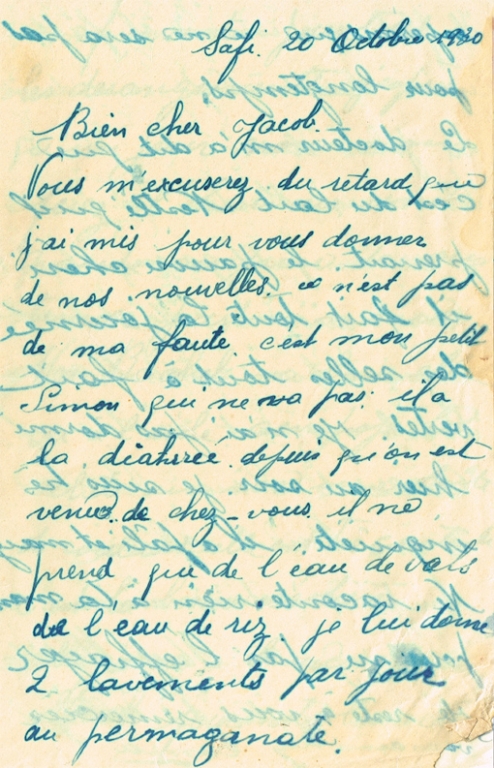 Safi. 20 Octobre 1930
Bien cher Jacob.
Vous m'excuserez du retard que
j'ai mis pour vous donner
de nos nouvelles. ce n'est pas
de ma faute c'est mon petit
Simon qui ne va pas. il a
la diahrreé. depuis qu'on est
venu de chez-vous. il ne
prend que de l'eau de vals
de l'eau de riz. je lui donne
2 lavements par jour
au permaganate.